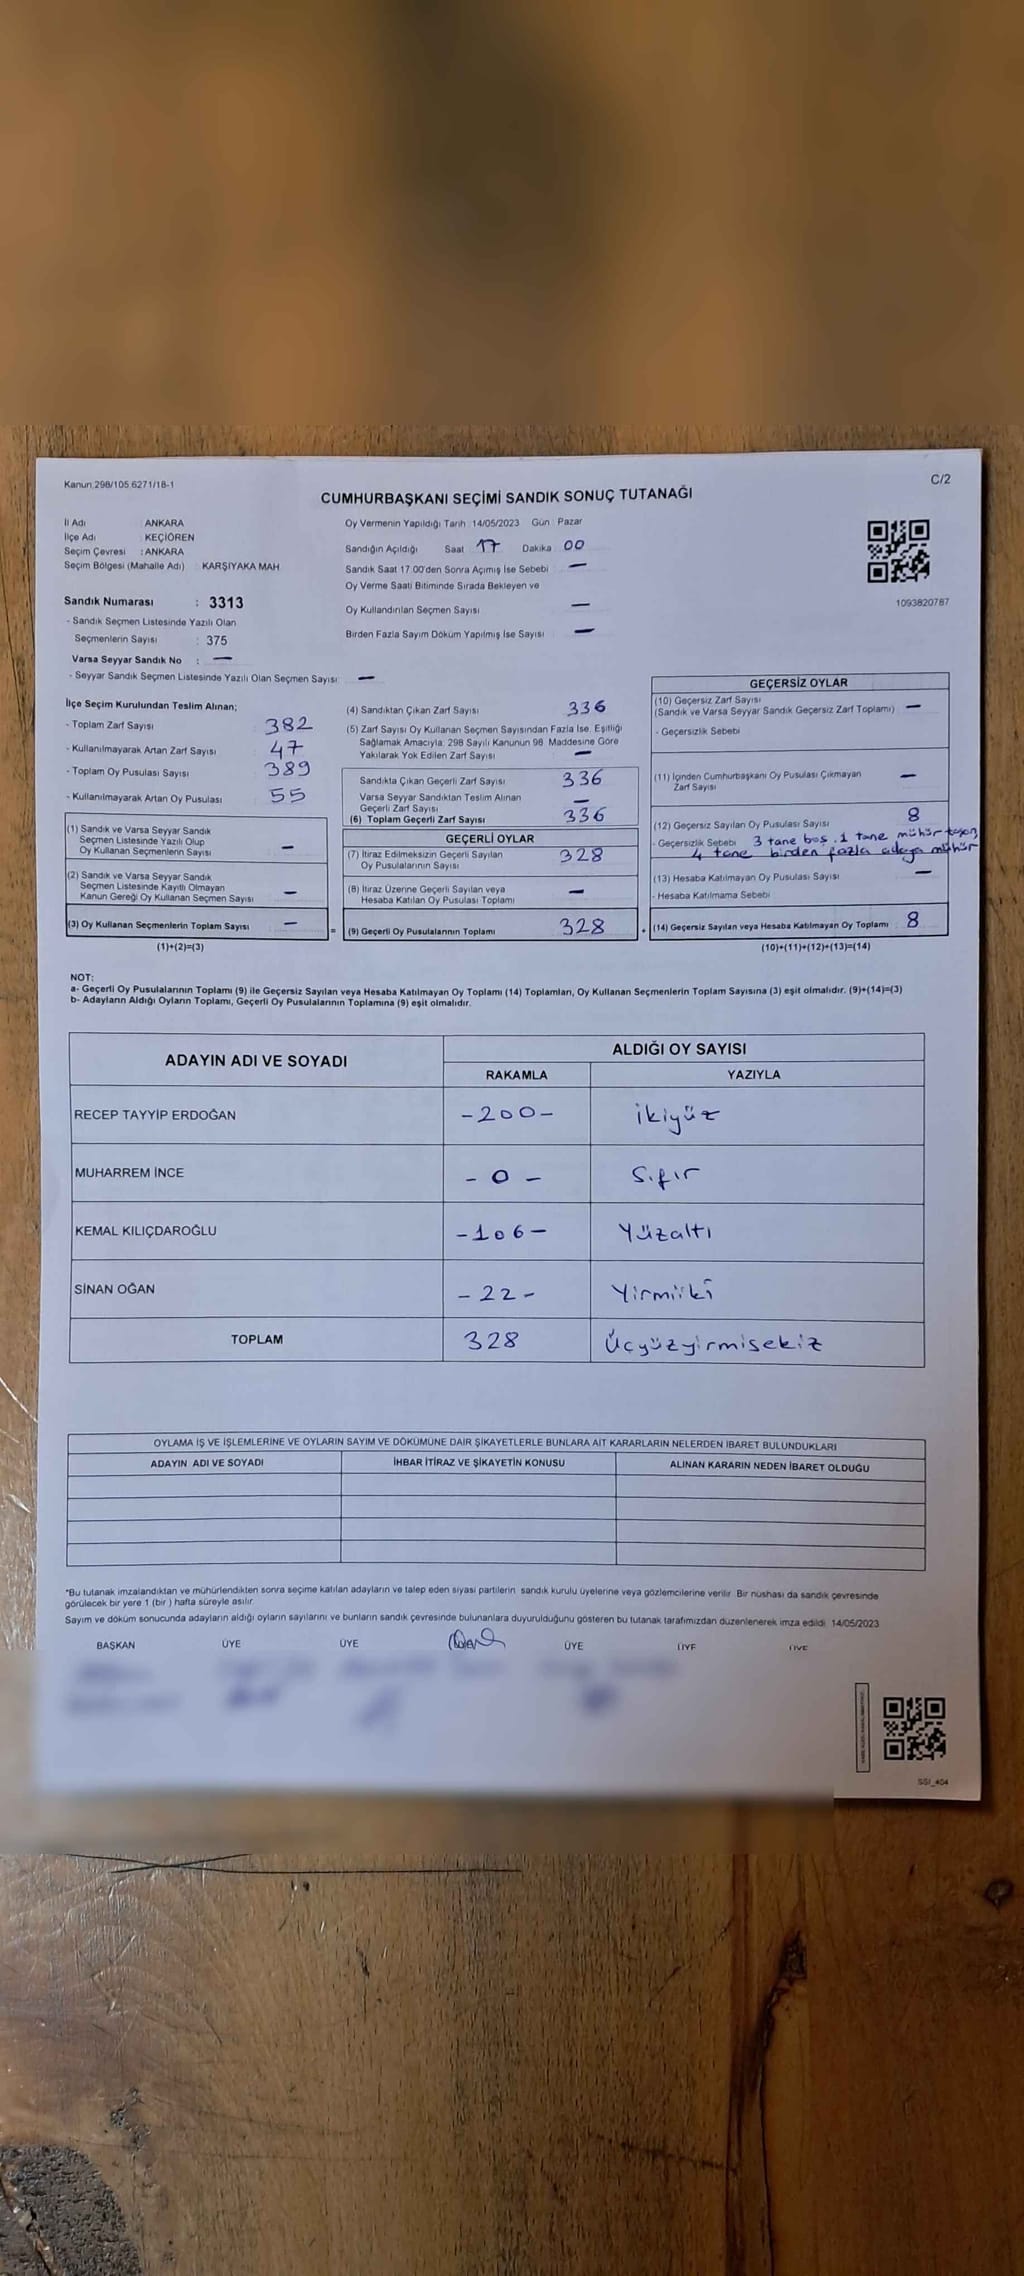 Kanun.298/105.6271/18-1
C/2
CUMHURBAŞKANI SEÇİMİ SANDIK SONUÇ TUTANAĞI
İl Adı : ANKARA
İlçe Adı : KEÇİÖREN
Seçim Çevresi : ANKARA
Seçim Bölgesi (Mahalle Adı) : KARŞIYAKA MAH
Sandık Numarası : 3313
- Sandık Seçmen Listesinde Yazılı Olan
Seçmenlerin Sayısı : 375
Varsa Seyyar Sandık No : —
- Seyyar Sandık Seçmen Listesinde Yazılı Olan Seçmen Sayısı: —
Oy Vermenin Yapıldığı Tarih : 14/05/2023 Gün : Pazar
Sandığın Açıldığı Saat 17 Dakika 00
Sandık Saat 17.00'den Sonra Açımış İse Sebebi —
Oy Verme Saati Bitiminde Sırada Bekleyen ve
Oy Kullandırılan Seçmen Sayısı —
Birden Fazla Sayım Döküm Yapılmış İse Sayısı —
1093820787
İlçe Seçim Kurulundan Teslim Alınan;
- Toplam Zarf Sayısı 382
- Kullanılmayarak Artan Zarf Sayısı 47
- Toplam Oy Pusulası Sayısı 389
- Kullanılmayarak Artan Oy Pusulası 55
(1) Sandık ve Varsa Seyyar Sandık
Seçmen Listesinde Yazılı Olup
Oy Kullanan Seçmenlerin Sayısı —
(2) Sandık ve Varsa Seyyar Sandık
Seçmen Listesinde Kayıtlı Olmayan
Kanun Gereği Oy Kullanan Seçmen Sayısı —
(3) Oy Kullanan Seçmenlerin Toplam Sayısı —
(1)+(2)=(3)
(4) Sandıktan Çıkan Zarf Sayısı 336
(5) Zarf Sayısı Oy Kullanan Seçmen Sayısından Fazla İse, Eşitliği
Sağlamak Amacıyla; 298 Sayılı Kanunun 98. Maddesine Göre
Yakılarak Yok Edilen Zarf Sayısı —
Sandıkta Çıkan Geçerli Zarf Sayısı 336
Varsa Seyyar Sandıktan Teslim Alınan
Geçerli Zarf Sayısı —
(6) Toplam Geçerli Zarf Sayısı 336
GEÇERLİ OYLAR
(7) İtiraz Edilmeksizin Geçerli Sayılan
Oy Pusulalarının Sayısı 328
(8) İtiraz Üzerine Geçerli Sayılan veya
Hesaba Katılan Oy Pusulası Toplamı —
= (9) Geçerli Oy Pusulalarının Toplamı 328
GEÇERSİZ OYLAR
(10) Geçersiz Zarf Sayısı
(Sandık ve Varsa Seyyar Sandık Geçersiz Zarf Toplamı) —
- Geçersizlik Sebebi
(11) İçinden Cumhurbaşkanı Oy Pusulası Çıkmayan
Zarf Sayısı —
(12) Geçersiz Sayılan Oy Pusulası Sayısı 8
- Geçersizlik Sebebi 3 tane boş. 1 tane mühür taşan,
4 tane birden fazla adaya mühür
(13) Hesaba Katılmayan Oy Pusulası Sayısı —
- Hesaba Katılmama Sebebi
(14) Geçersiz Sayılan veya Hesaba Katılmayan Oy Toplamı 8
(10)+(11)+(12)+(13)=(14)
NOT:
a- Geçerli Oy Pusulalarının Toplamı (9) ile Geçersiz Sayılan veya Hesaba Katılmayan Oy Toplamı (14) Toplamları, Oy Kullanan Seçmenlerin Toplam Sayısına (3) eşit olmalıdır. (9)+(14)=(3)
b- Adayların Aldığı Oyların Toplamı, Geçerli Oy Pusulalarının Toplamına (9) eşit olmalıdır.
ADAYIN ADI VE SOYADI
ALDIĞI OY SAYISI
RAKAMLA YAZIYLA
RECEP TAYYİP ERDOĞAN -200- ikiyüz
MUHARREM İNCE - 0 - Sıfır
KEMAL KILIÇDAROĞLU -106- Yüzaltı
SİNAN OĞAN - 22 - Yirmiiki
TOPLAM 328 Üçyüzyirmisekiz
OYLAMA İŞ VE İŞLEMLERİNE VE OYLARIN SAYIM VE DÖKÜMÜNE DAİR ŞİKAYETLERLE BUNLARA AİT KARARLARIN NELERDEN İBARET BULUNDUKLARI
ADAYIN ADI VE SOYADI İHBAR İTİRAZ VE ŞİKAYETİN KONUSU ALINAN KARARIN NEDEN İBARET OLDUĞU
*Bu tutanak imzalandıktan ve mühürlendikten sonra seçime katılan adayların ve talep eden siyasi partilerin sandık kurulu üyelerine veya gözlemcilerine verilir. Bir nüshası da sandık çevresinde
görülecek bir yere 1 (bir ) hafta süreyle asılır.
Sayım ve döküm sonucunda adayların aldığı oyların sayılarını ve bunların sandık çevresinde bulunanlara duyurulduğunu gösteren bu tutanak tarafımızdan düzenlenerek imza edildi. 14/05/2023
BAŞKAN ÜYE ÜYE ÜYE ÜYE ÜYE
SSI_404